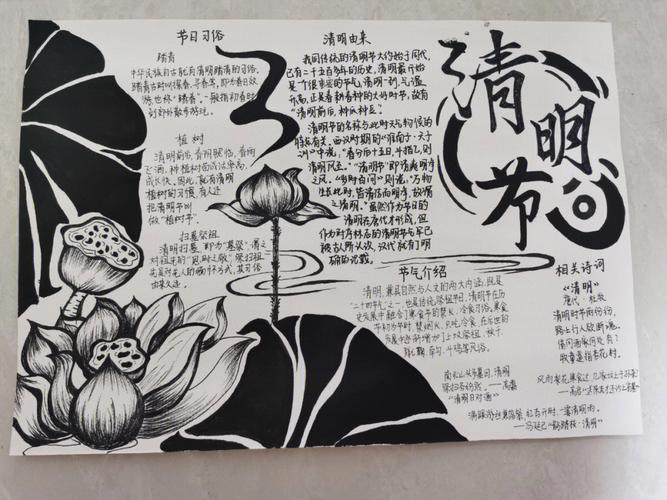 节日习俗
踏青
中华民族自古就有清明踏青的习俗。
踏青古时叫探春、寻春等，即为春日郊
游，也称"踏春"。一般指初春时
到郊外散步游玩。
植树
清明前后，春阳照临，春雨
飞洒，种植树苗成活率高，
成长快。因此，就有清明
植树的习惯，有人还
把清明节叫
做"植树节"。
扫墓祭祖
清明扫墓，即为"墓祭"，谓之
对祖先的"思时之敬"。祭扫祖
先是对先人的缅怀方式，其习俗
由来久远。
清明由来
我国传统的清明节大约始于周代，
已有二千五百多年的历史。清明最开始
是个很重要的节气，清明一到，气温
升高，正是春耕春种的大好时节，故有
"清明前后，种瓜种豆"。
清明节的名称与此时天气物候的
特点有关。西汉时期的《淮南子·天文
训》中说："春分后十五日，斗指乙，则
清明风至。""清明节"即清爽明净
之风。《岁时百问》则说："万物
生长此时，皆清洁而明净，故谓
之清明。"虽然作为节日的
清明在唐代才形成，但
作为时序标志的清明节气早已
被古人所认识，汉代就有了明
确的记载。
清明节
节气介绍
清明，兼具自然与人文的两大内涵，既是
"二十四节气"之一，也是传统祭祖节日，清明节在历
史发展中融合了寒食节的禁火、冷食习俗。寒食
节初为节时，禁烟火，只吃冷食，在后世的
发展中逐渐增加了上坟祭祖、秋千、
蹴鞠、牵勾、斗鸡等风俗。
南北山头多墓田，清明
祭扫各纷然。——高翥
"清明日对酒"
相关诗词
《清明》
唐代·杜牧
清明时节雨纷纷，
路上行人欲断魂。
借问酒家何处有？
牧童遥指杏花村。